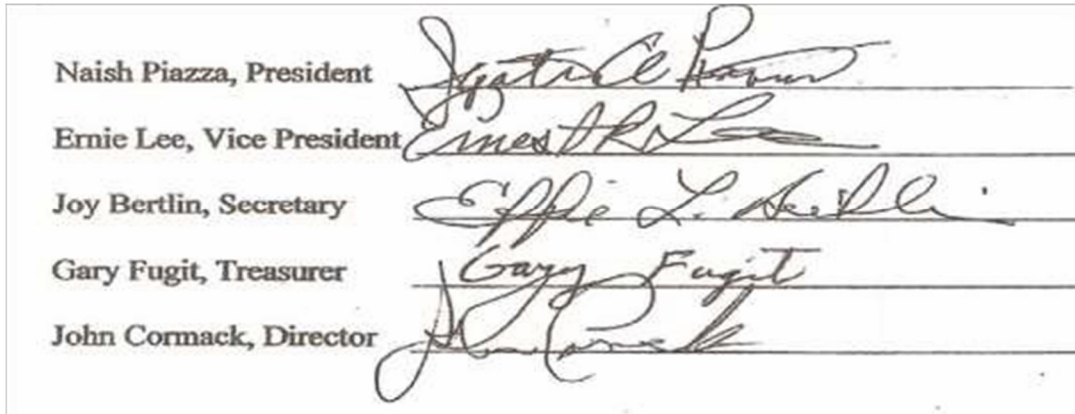 Naish Piazza, President
Ernie Lee, Vice President Ernest R Lee
Joy Bertlin, Secretary Effie L.
Gary Fugit, Treasurer Gary Fugit
John Cormack, Director